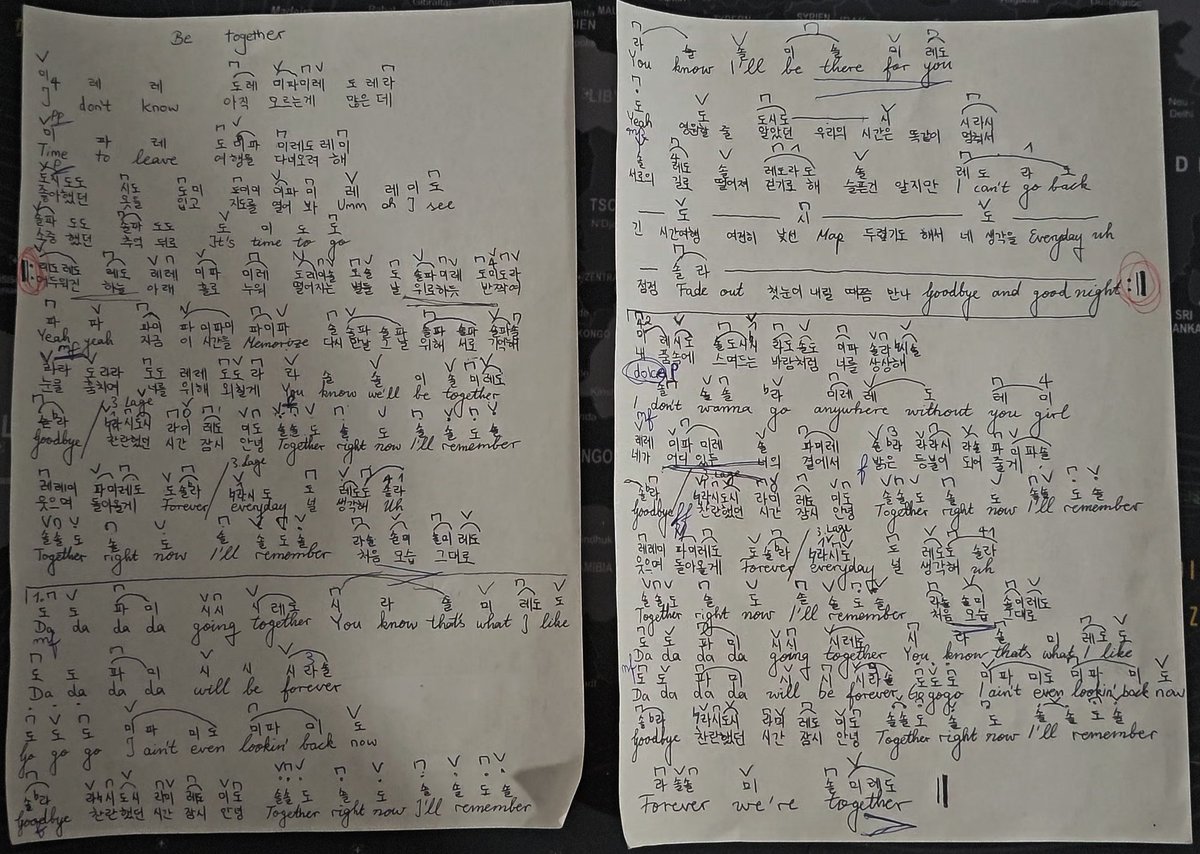 Be together
미 레 레 도레 미파미레 도 레라
I don't know 아직 모르는게 많은 데
pp
미 파 레 도미파 미레도레미
Time to leave 여행을 다녀오려 해
p
도시도도 시도 도미 도미미 미파미 레 레 미 도
좋아했던 옷을 입고 지도를 열어 봐 Umm oh I see
솔파 도도 솔파 도도 도 미 도 도
소중 했던 추억 뒤로 It's time to go
어두워진 하늘 아래 홀로 누워 떨어지는 별들 날 위로하듯 반짝여
파 파 파미 파 미파미 파미파 솔 솔파 솔파 솔파 솔파 솔파솔
Yeah yeah 지금 이 시간을 Memorize 다시 만날 그 날 위해 서로 기억해
mf
라라 도라라 도도 레레 도도라 라 라 솔 솔 미 솔 미레도
눈을 훔치며 너를 위해 외칠게 You know we'll be together
3. Lage
Goodbye 찬란했던 시간 잠시 안녕 Together right now I'll remember
3. Lage
레레미 파미레도 도솔라 시도 도 레도도 솔라
웃으며 돌아올게 Forever everyday 널 생각해 Uh
솔솔도 솔 도 솔 도 솔 라솔 솔미 솔미 레도
Together right now I'll remember 처음 모습 그대로
1.
도 도 파 미 시시 시 레도 시 라 솔 미 레도 도
Da da da da going together You know thats what I like
mf
도 도 파 미 시 시 시라솔
Da da da da will be forever
도 도 도 미파 미도 미파 미 도
Go go go I ain't even lookin' back now
Goodbye 찬란했던 시간 잠시 안녕 Together right now I'll remember
f
라 솔 솔 미 솔 미 레도
You know I'll be there for you
도 도 도시도 시 시라시
Yeah 영원할 줄 알았던 우리의 시간은 똑같이 멈춰서
mf
솔 레도 솔 레도라도 솔 레 도 라 도
서로의 길로 떨어져 걷기로 해 슬픈건 알지만 I can't go back
도 시 도
긴 시간여행 여전히 낯선 Map 두렵기도 해서 네 생각을 Everyday uh
솔 라
점점 Fade out 첫눈이 내릴 때쯤 만나 Goodbye and good night
미 레시도 솔도시시 라도솔도 미파 솔라시솔
내 품속에 스며드는 바람처럼 너를 상상해
dolce p
솔 솔솔 라 미레 미레 도 레 미
I don't wanna go anywhere without you girl
mf
레레 미파 미레 솔 파미레 솔라 라라시 라솔 파 미파솔
네가 어디 있든 너의 곁에서 밝은 등불이 되어 줄게
f
3. Lage
Goodbye 찬란했던 시간 잠시 안녕 Together right now I'll remember
ff
3. Lage
레레미 파미레도 도솔라 시도 도 레도도 솔라
웃으며 돌아올게 Forever everyday 널 생각해 uh
솔솔도 솔 도 솔 도 솔 라솔 솔미 솔미레도
Together right now I'll remember 처음 모습 그대로
도 도 파 미 시시 시레도 시 라 솔 미 레도 도
Da da da da going together You know thats what I like
mf
도 도 파 미 시 시 시라솔 도 도 도 미파 미도 미파 미 도
Da da da da will be forever Go go go I ain't even lookin' back now
Goodbye 찬란했던 시간 잠시 안녕 Together right now I'll remember
라 솔솔 미 솔 미 레도
Forever we're together